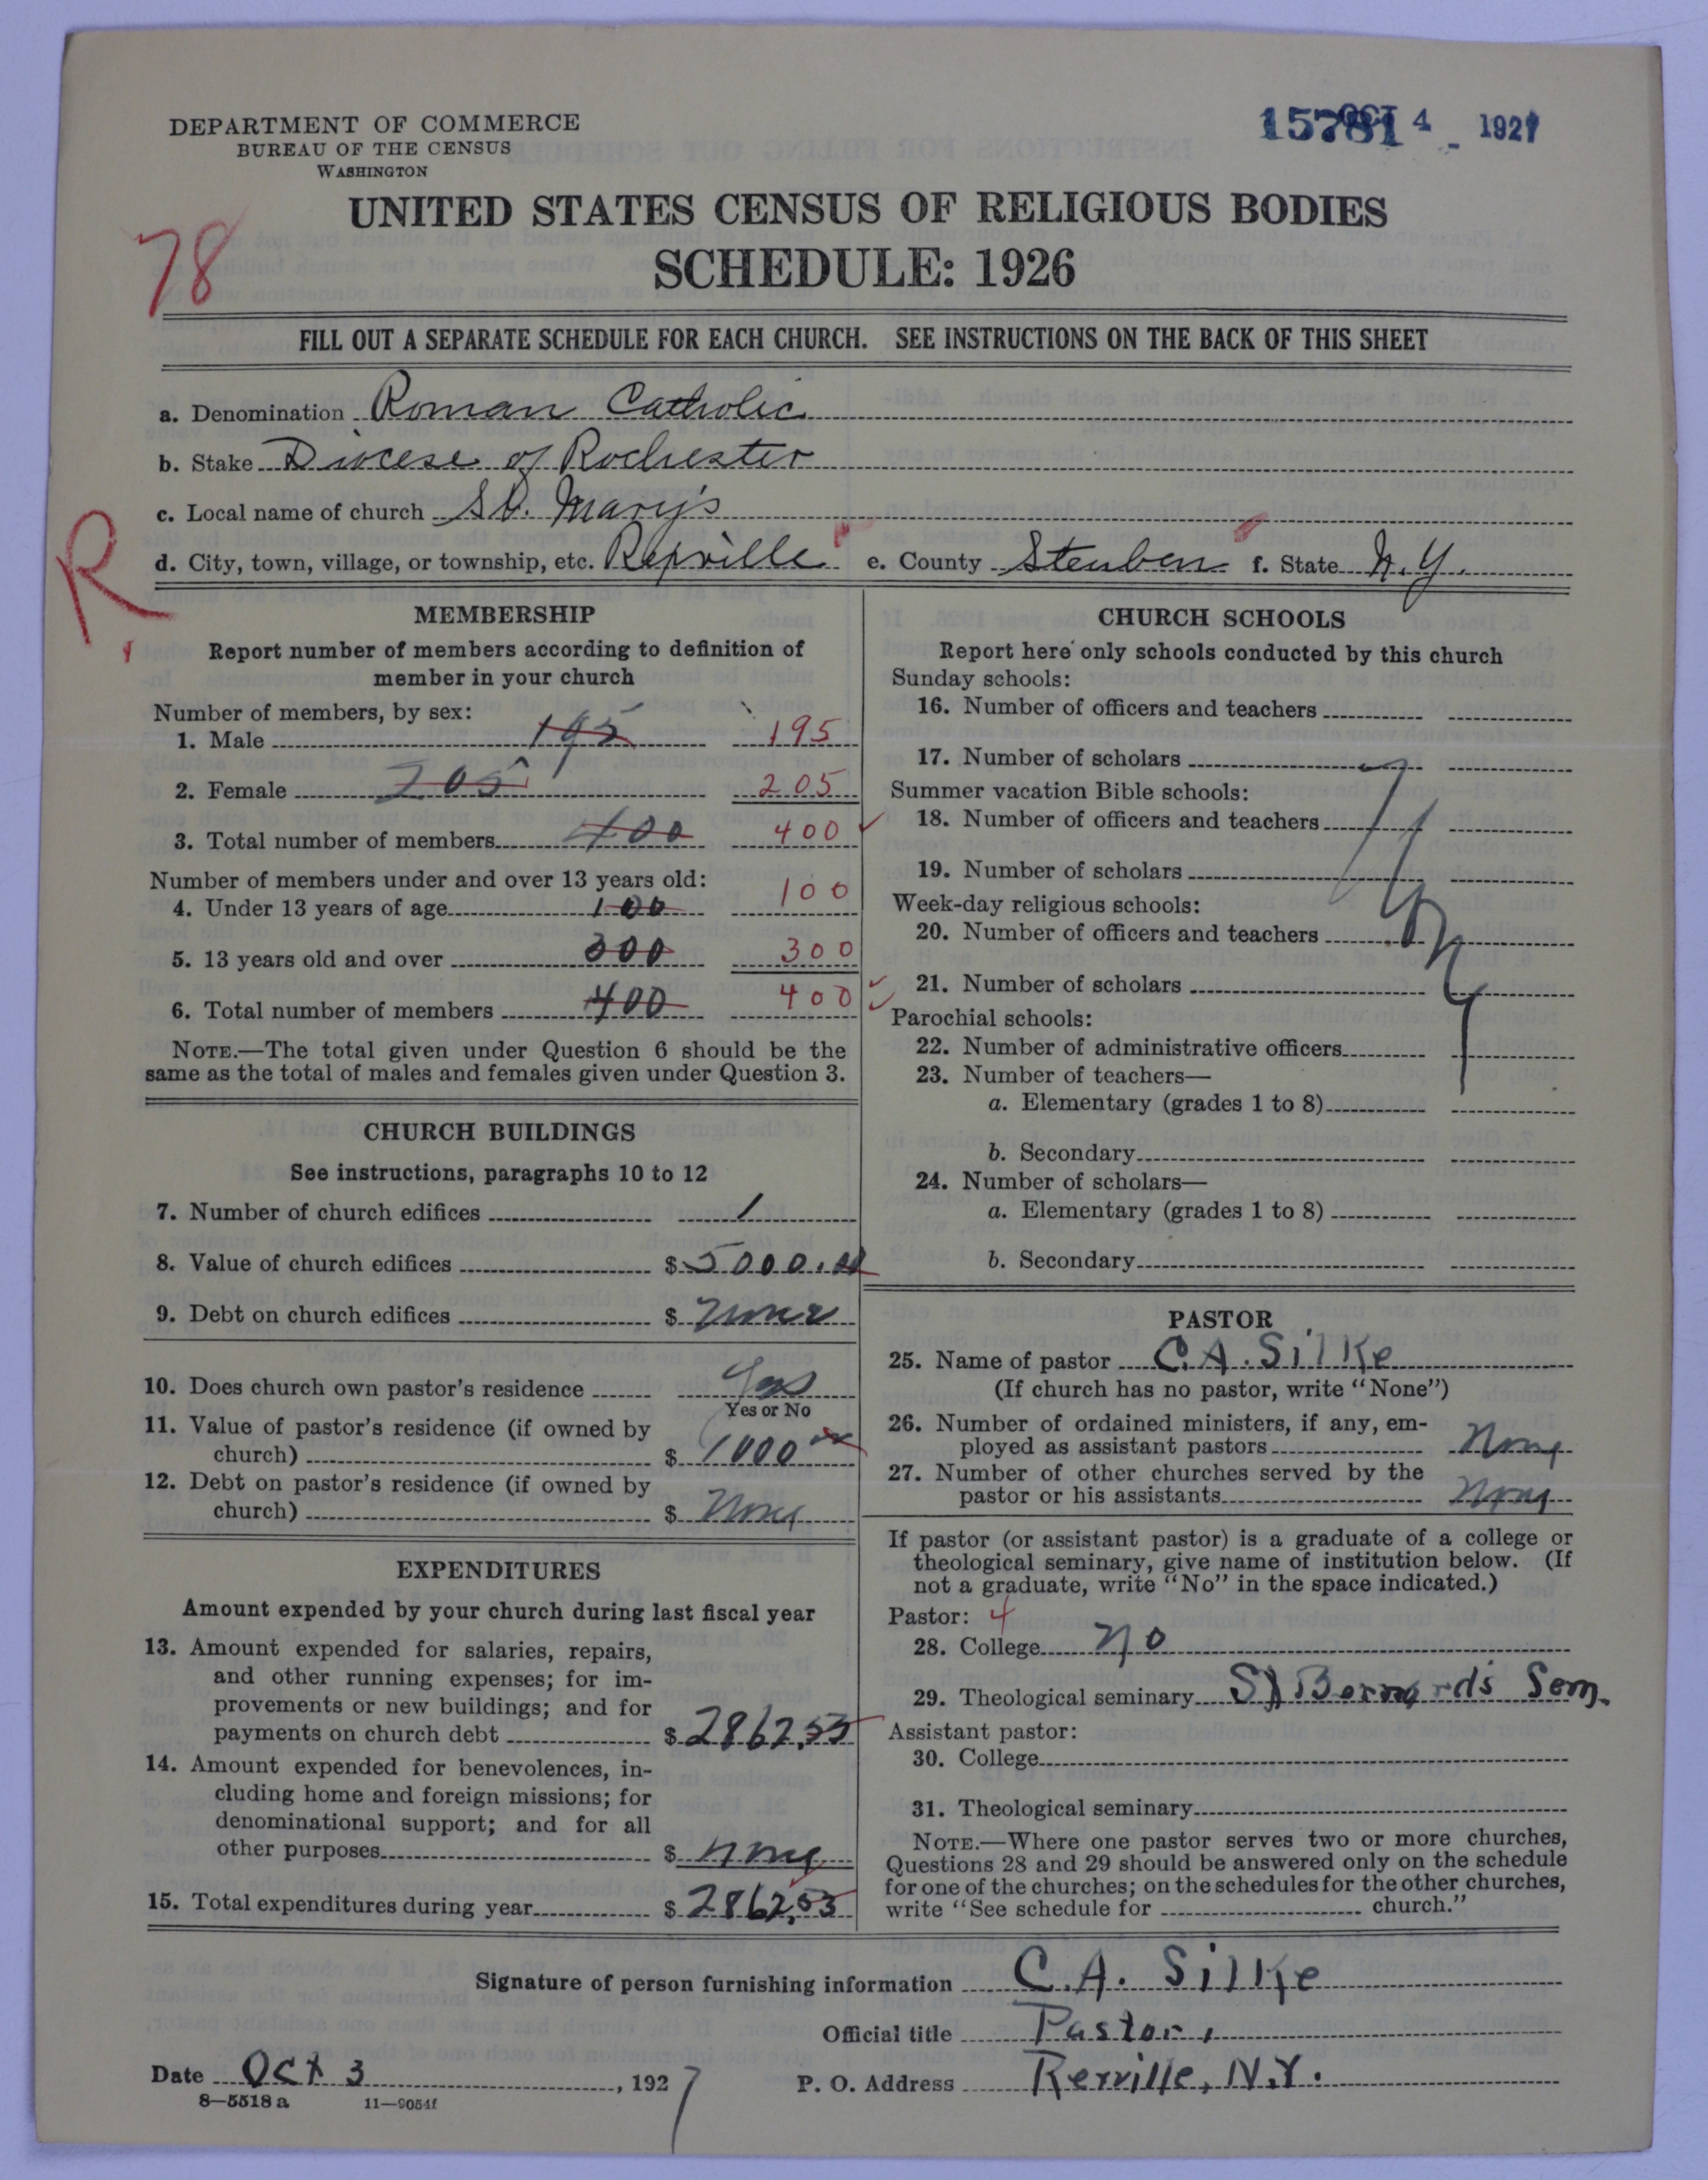 DEPARTMENT OF COMMERCE
BUREAU OF THE CENSUS
WASHINGTON
15781 OCT 4 1927
UNITED STATES CENSUS OF RELIGIOUS BODIES
SCHEDULE: 1926
78
FILL OUT A SEPARATE SCHEDULE FOR EACH CHURCH. SEE INSTRUCTIONS ON THE BACK OF THIS SHEET
a. Denomination Roman Catholic
b. Stake Diocese of Rochester
c. Local name of church St. Mary's
R
d. City, town, village, or township, etc. Rexville e. County Steuben f. State N.Y.
MEMBERSHIP
Report number of members according to definition of
member in your church
Number of members, by sex:
1. Male 195 195
2. Female 205 205
3. Total number of members 400 400
Number of members under and over 13 years old:
4. Under 13 years of age 100 100
5. 13 years old and over 300 300
6. Total number of members 400 400
NOTE.—The total given under Question 6 should be the
same as the total of males and females given under Question 3.
CHURCH BUILDINGS
See instructions, paragraphs 10 to 12
7. Number of church edifices 1
8. Value of church edifices $ 5000.00
9. Debt on church edifices $ None
10. Does church own pastor's residence Yes
Yes or No
11. Value of pastor's residence (if owned by
church) $ 1000 00
12. Debt on pastor's residence (if owned by
church) $ None
EXPENDITURES
Amount expended by your church during last fiscal year
13. Amount expended for salaries, repairs,
and other running expenses; for im-
provements or new buildings; and for
payments on church debt $ 2862.53
14. Amount expended for benevolences, in-
cluding home and foreign missions; for
denominational support; and for all
other purposes $ None
15. Total expenditures during year $ 2862.53
CHURCH SCHOOLS
Report here only schools conducted by this church
Sunday schools:
16. Number of officers and teachers
17. Number of scholars
Summer vacation Bible schools:
18. Number of officers and teachers
19. Number of scholars
Week-day religious schools:
20. Number of officers and teachers
21. Number of scholars
Parochial schools:
22. Number of administrative officers
23. Number of teachers—
a. Elementary (grades 1 to 8)
b. Secondary
24. Number of scholars—
a. Elementary (grades 1 to 8)
b. Secondary
PASTOR
25. Name of pastor C.A. Silke
(If church has no pastor, write "None")
26. Number of ordained ministers, if any, em-
ployed as assistant pastors None
27. Number of other churches served by the
pastor or his assistants None
If pastor (or assistant pastor) is a graduate of a college or
theological seminary, give name of institution below. (If
not a graduate, write "No" in the space indicated.)
Pastor: 4
28. College No
29. Theological seminary St Bernards Sem.
Assistant pastor:
30. College
31. Theological seminary
NOTE.—Where one pastor serves two or more churches,
Questions 28 and 29 should be answered only on the schedule
for one of the churches; on the schedules for the other churches,
write "See schedule for church."
Signature of person furnishing information C.A. Silke
Official title Pastor,
Date Oct 3, 1927 P. O. Address Rexville, N.Y.
8—5518 a 11—9054f